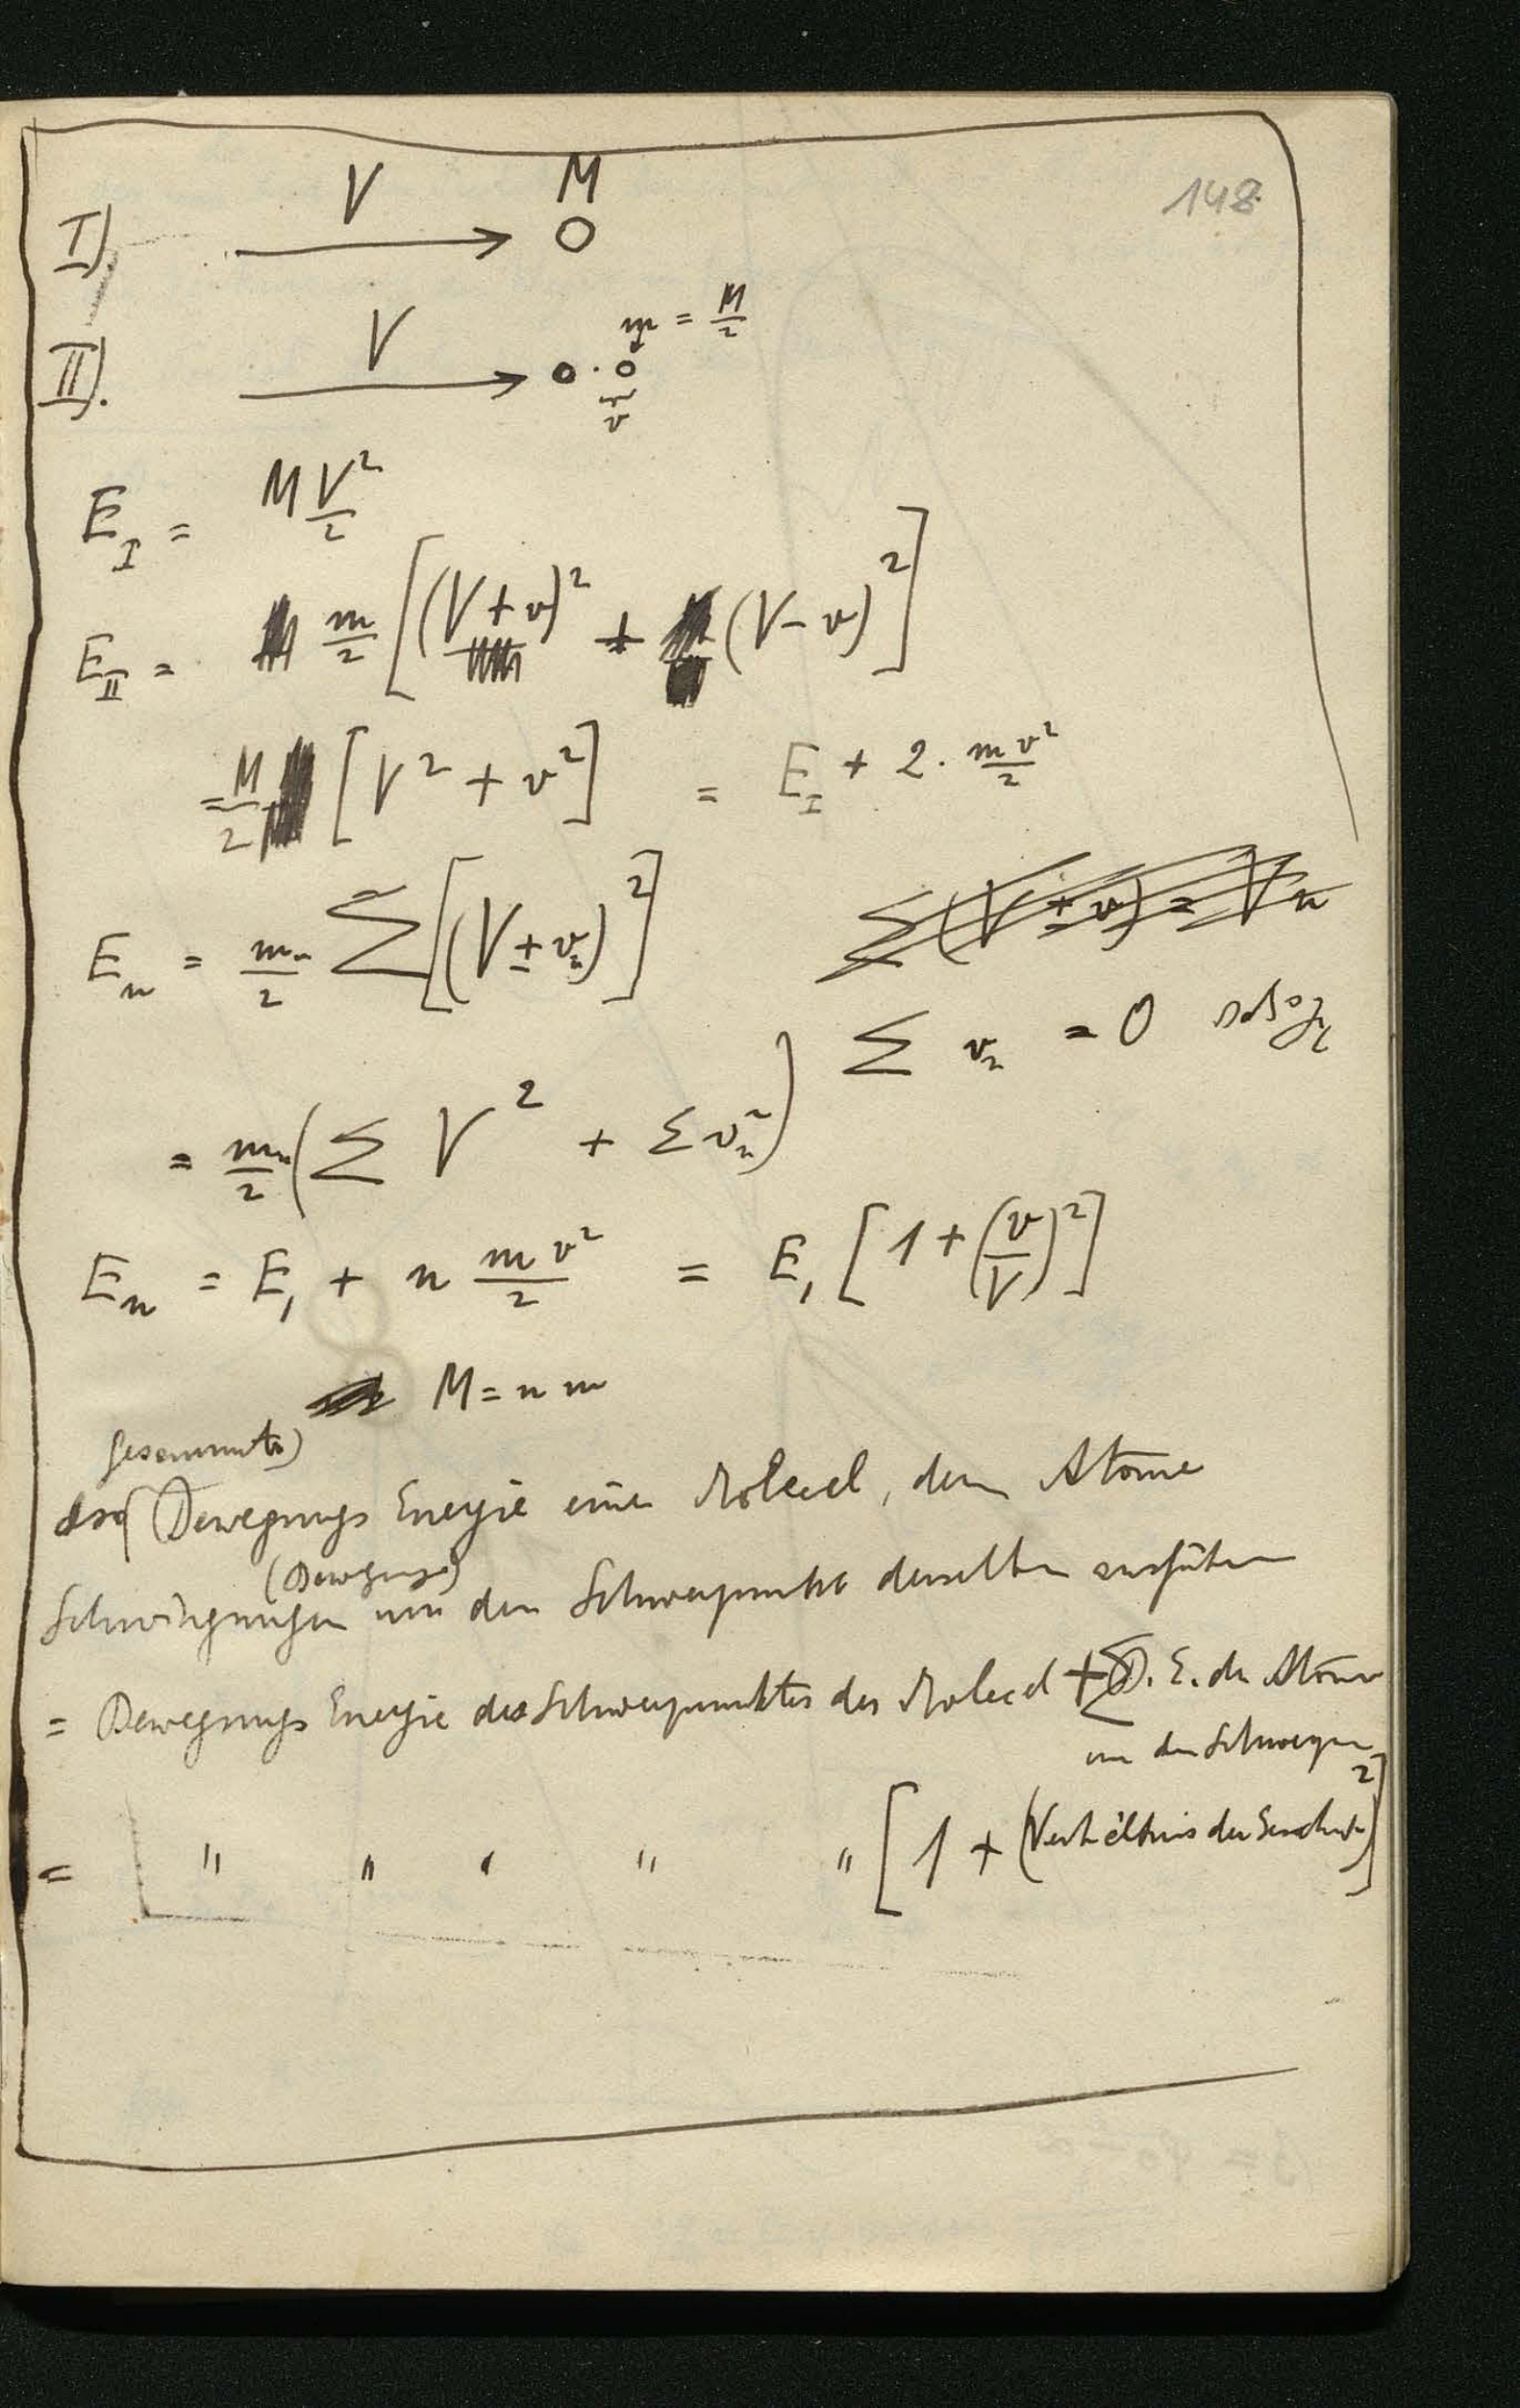 148
I) V M
II). V m = M/2
v
E_I = M V²/2
E_II = m/2 [(V+v)² + (V-v)²]
= M/2 [V² + v²] = E_I + 2. m v²/2
E_n = m_n/2 Σ [(V ± v_n)²] Σ(V ± v) = V n
Σ v_n = 0
= m_n/2 (Σ V² + Σ v_n²)
E_n = E_1 + n m v²/2 = E_1 [1 + (v/V)²]
M = n m
gesammte)
Bewegungs Energie einer Molecel, deren Atome
(Bewegungen)
Schwingungen um den Schwerpunkt derselben ausführen
= Bewegungs Energie des Schwerpunktes der Molecel + Σ B. E. der Atome
um den Schwerpun
= " " " " " [1 + (Verhältnis der Geschw)²]